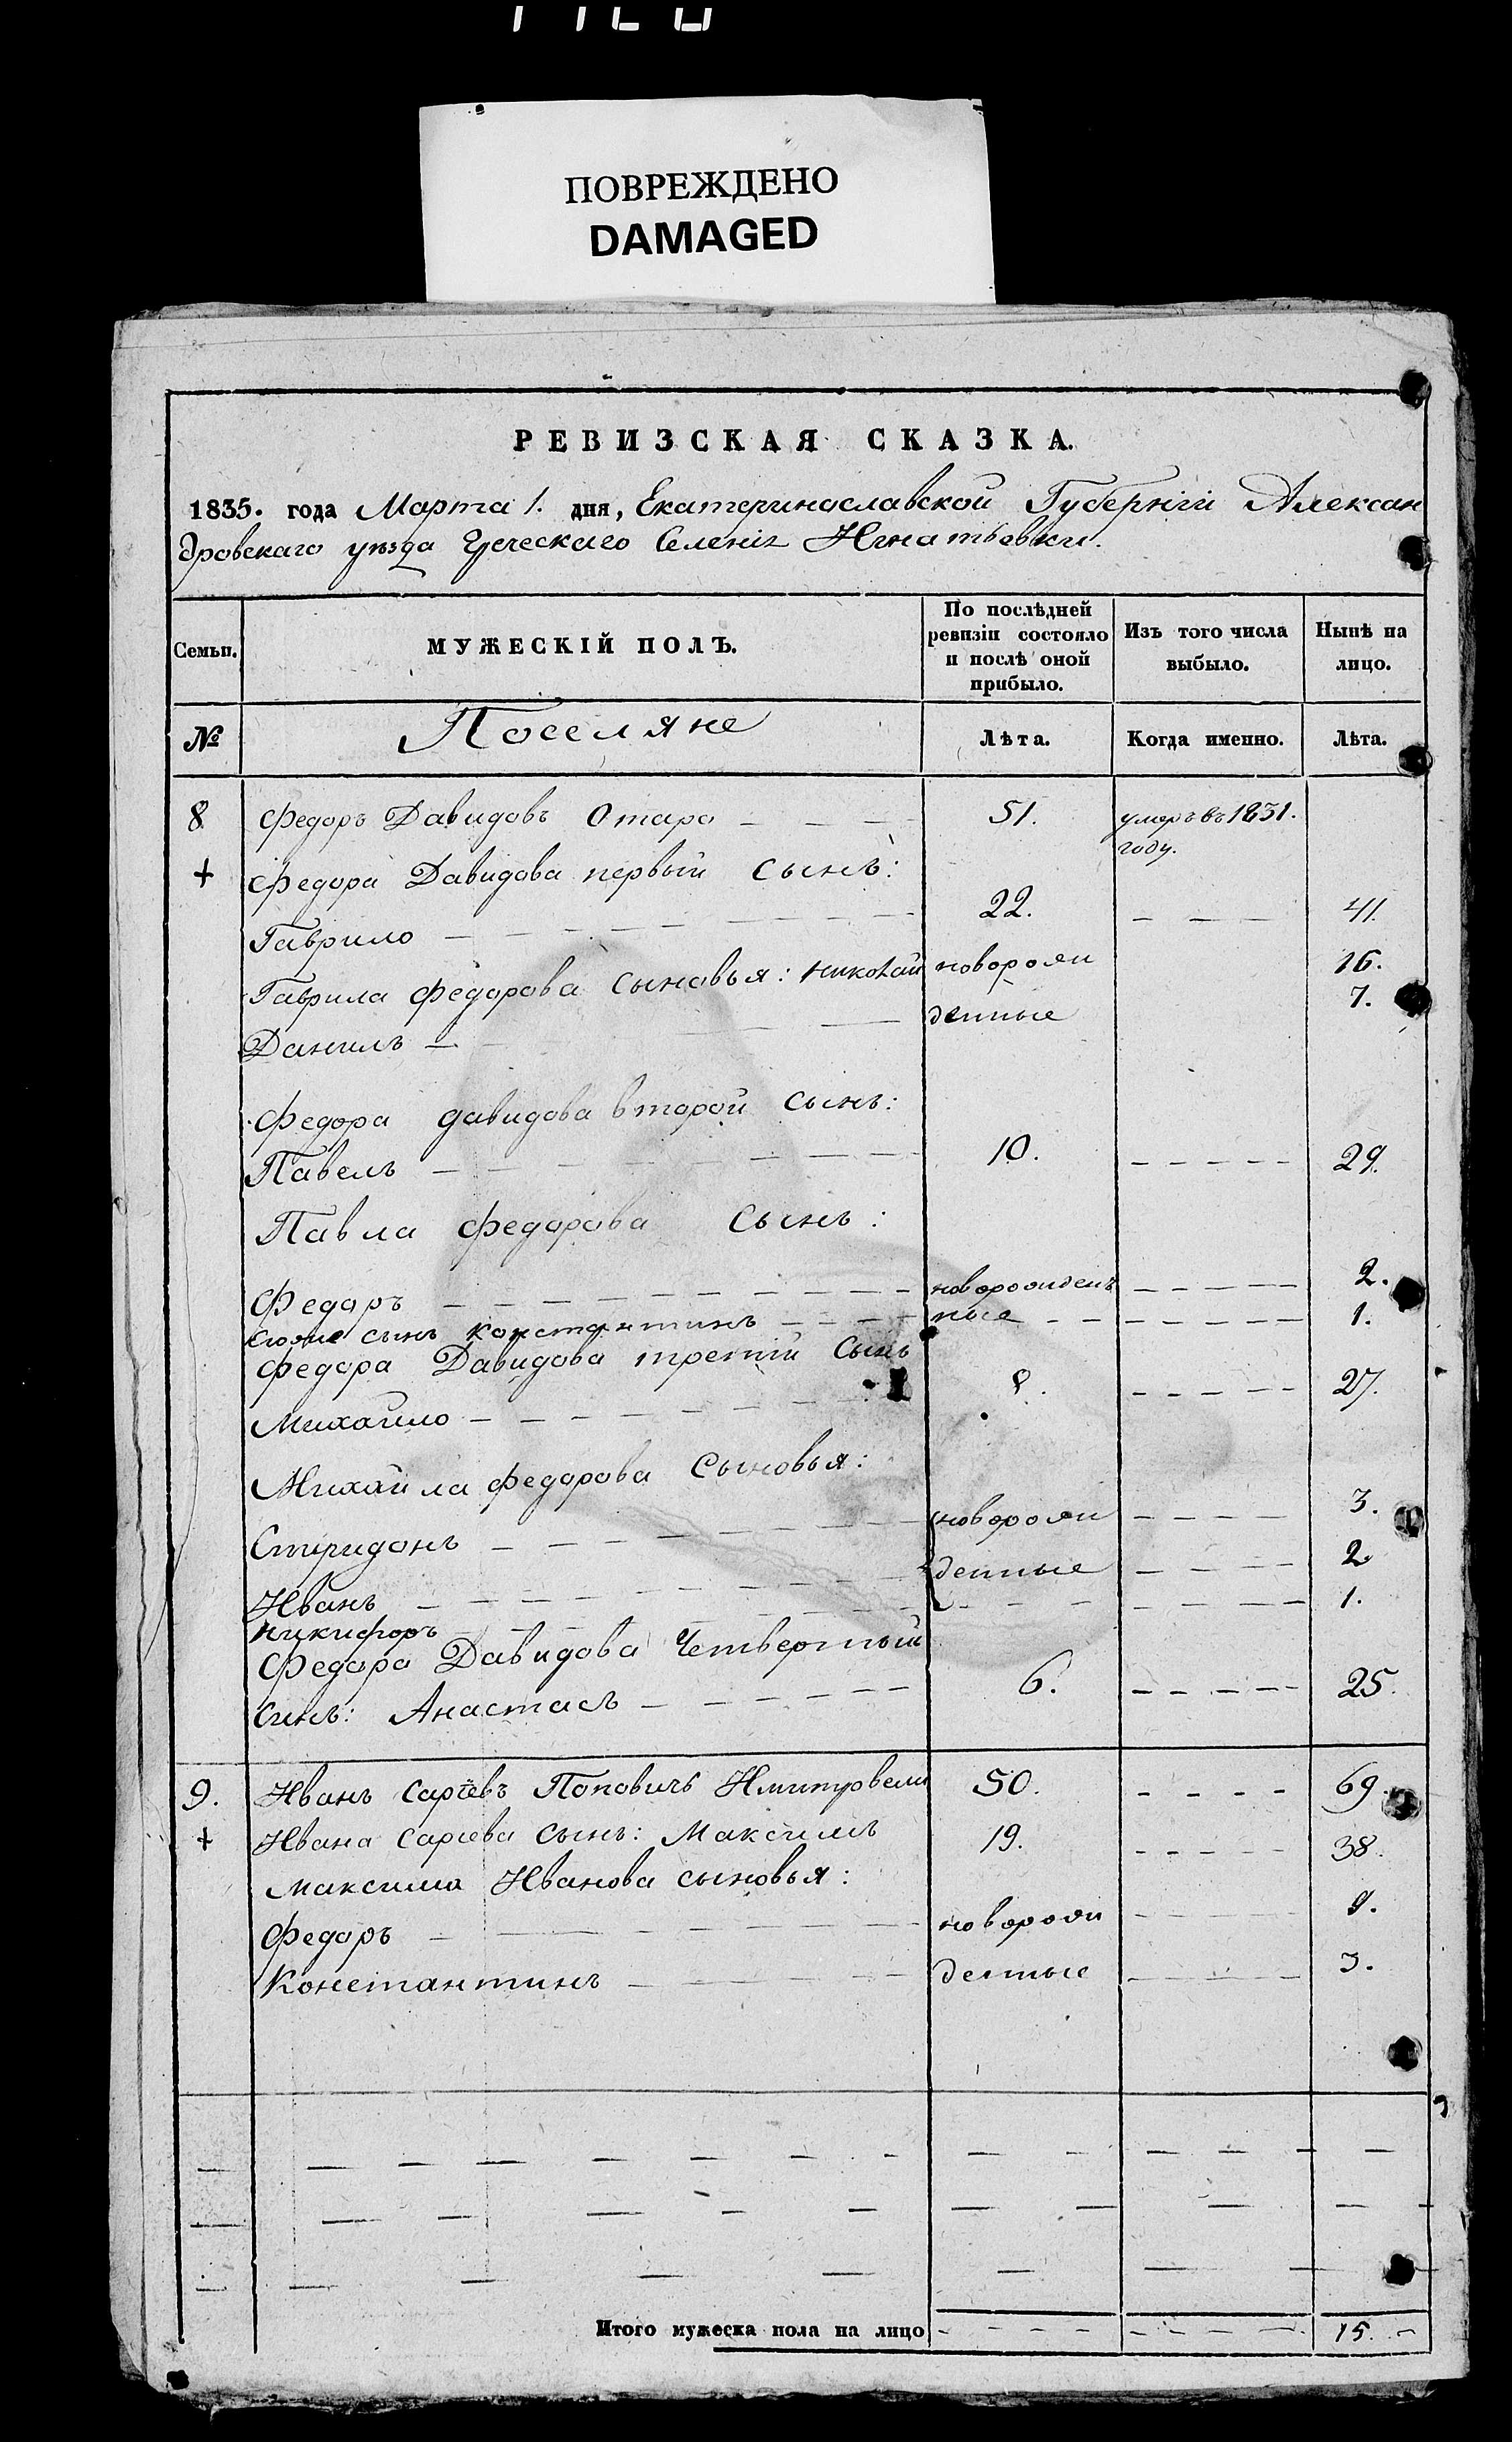 ПОВРЕЖДЕНО
DAMAGED
РЕВИЗСКАЯ СКАЗКА.
1835. года Марта 1. дня, Екатеринославской Губерніи Алексан
дровскаго уѣзда Греческаго Селенія Игнатьевки.
Семьи. МУЖЕСКІЙ ПОЛЪ. По послѣдней ревизіи состояло и послѣ оной прибыло. Изъ того числа выбыло. Нынѣ на лицо.
№ Поселяне Лѣта. Когда именно. Лѣта.
8 Федоръ Давидовъ Отаро 51. умеръ въ 1831.
году.
+ Федора Давидова первый Сынъ:
Гаврило 22. 41.
Гаврила Федорова Сыновья: Николай новорож 16.
Данилъ денные 7.
Федора Давидова второй Сынъ:
Павелъ 10. 29.
Павла Федорова Сынъ:
Федоръ новорожден 2.
Егоже сынъ Константинъ ные 1.
Федора Давидова третій Сынъ
Михайло 8. 27.
Михайла Федорова Сыновья:
Спиридонъ новорож 3.
Иванъ денные 2.
Никифоръ 1.
Федора Давидова Четвертый
Сынъ: Анастасъ 6. 25.
9. Иванъ Саріевъ Поповичъ 50. 69.
+ Ивана Саріева Сынъ: Максимъ 19. 38.
Максима Иванова сыновья:
Федоръ новорож 9.
Константинъ денные 3.
Итого мужеска пола на лицо 15.